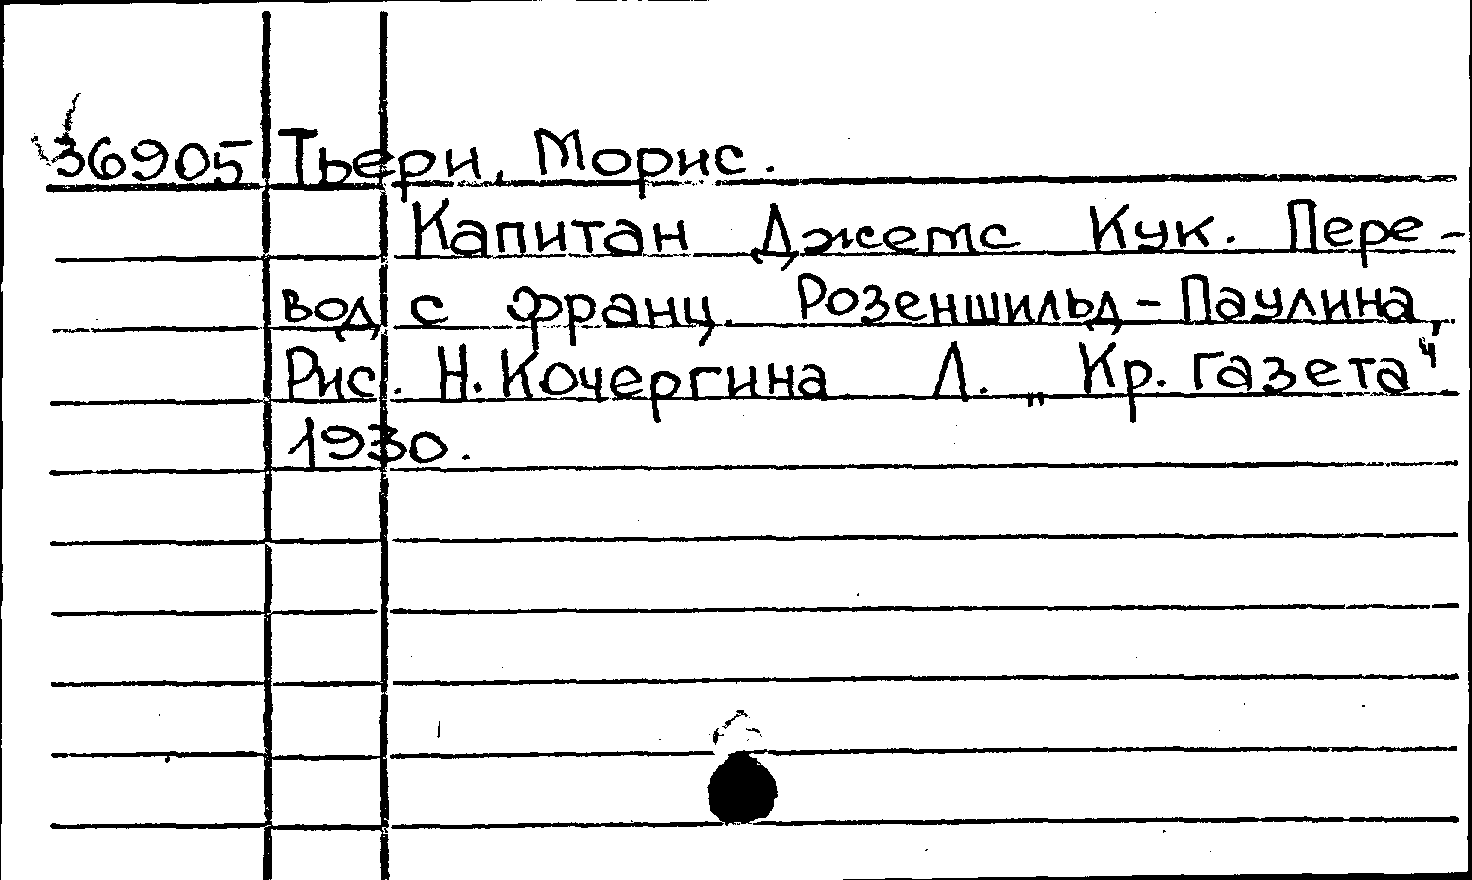 36905 Тьери, Морис.
Капитан Джемс Кук. Пере-
вод с франц. Розеншильд-Паулина,
Рис. Н. Кочергина Л. „Кр. газета“
1930.